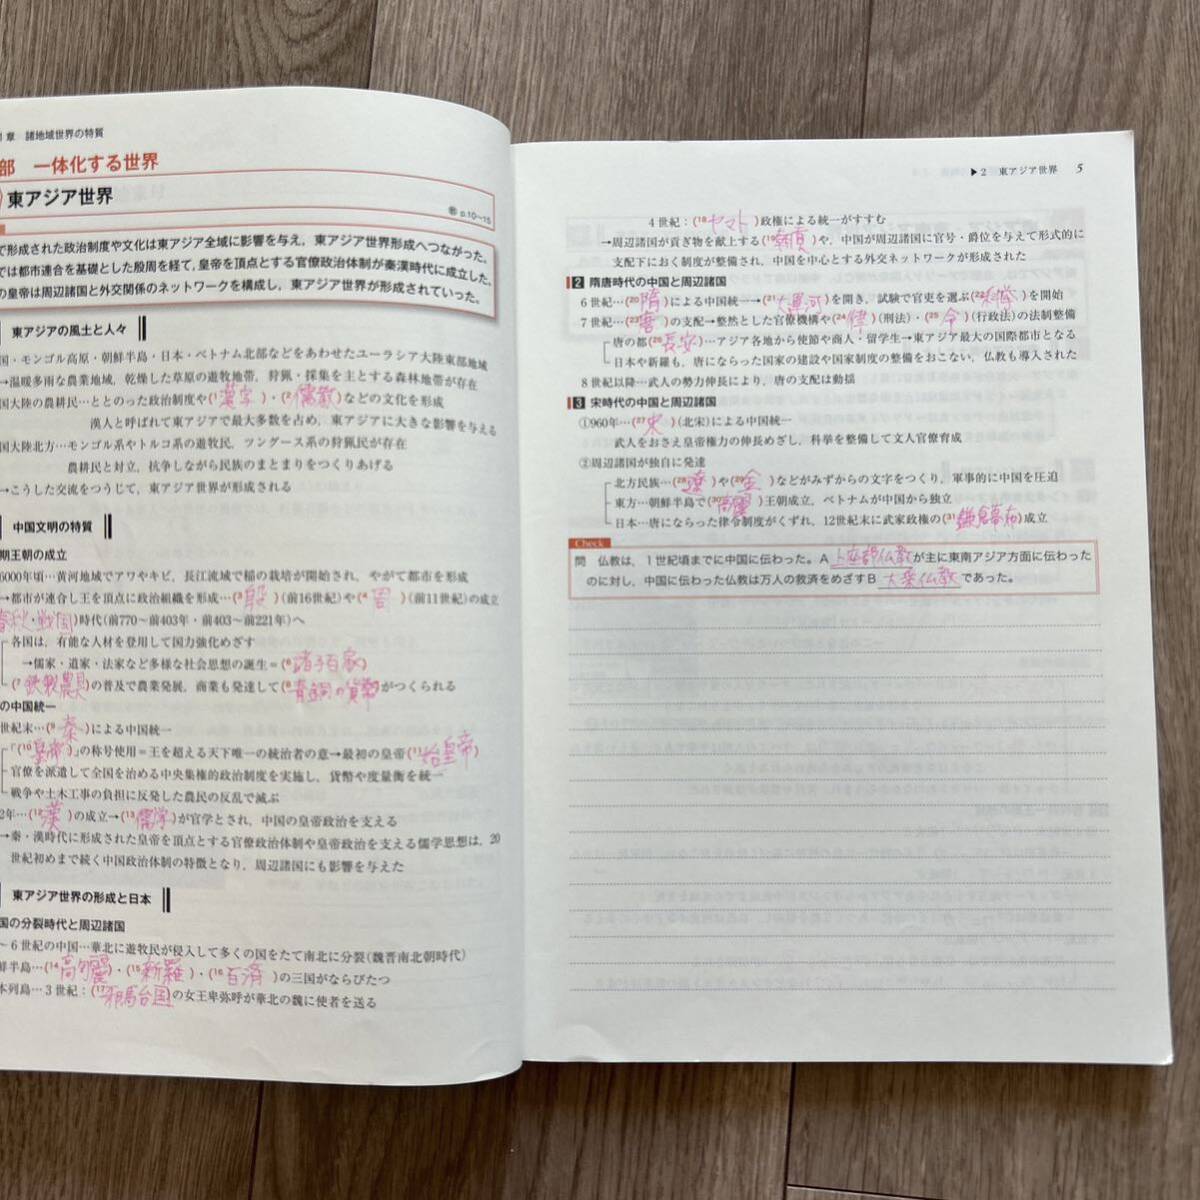 章 諸地域世界の特質
部 一体化する世界
東アジア世界
p.10〜15
で形成された政治制度や文化は東アジア全域に影響を与え，東アジア世界形成へつながった。
では都市連合を基礎とした殷周を経て，皇帝を頂点とする官僚政治体制が秦漢時代に成立した。
の皇帝は周辺諸国と外交関係のネットワークを構成し，東アジア世界が形成されていった。
東アジアの風土と人々
国・モンゴル高原・朝鮮半島・日本・ベトナム北部などをあわせたユーラシア大陸東部地域
→温暖多雨な農業地域，乾燥した草原の遊牧地帯，狩猟・採集を主とする森林地帯が存在
国大陸の農耕民…ととのった政治制度や(1漢字)・(2儒教)などの文化を形成
漢人と呼ばれて東アジアで最大多数を占め，東アジアに大きな影響を与える
国大陸北方…モンゴル系やトルコ系の遊牧民，ツングース系の狩猟民が存在
農耕民と対立，抗争しながら民族のまとまりをつくりあげる
→こうした交流をつうじて，東アジア世界が形成される
中国文明の特質
期王朝の成立
6000年頃…黄河地域でアワやキビ，長江流域で稲の栽培が開始され，やがて都市を形成
→都市が連合し王を頂点に政治組織を形成…(3殷)(前16世紀)や(4周)(前11世紀)の成立
春秋・戦国)時代(前770〜前403年・前403〜前221年)へ
各国は，有能な人材を登用して国力強化めざす
→儒家・道家・法家など多様な社会思想の誕生＝(6諸子百家)
(7鉄製農具)の普及で農業発展，商業も発達して(8青銅の貨幣)がつくられる
の中国統一
世紀末…(9秦)による中国統一
「(10皇帝)」の称号使用＝王を超える天下唯一の統治者の意→最初の皇帝(11始皇帝)
官僚を派遣して全国を治める中央集権的政治制度を実施し，貨幣や度量衡を統一
戦争や土木工事の負担に反発した農民の反乱で滅ぶ
2年…(12漢)の成立→(13儒学)が官学とされ，中国の皇帝政治を支える
→秦・漢時代に形成された皇帝を頂点とする官僚政治体制や皇帝政治を支える儒学思想は，20
世紀初めまで続く中国政治体制の特徴となり，周辺諸国にも影響を与えた
東アジア世界の形成と日本
国の分裂時代と周辺諸国
〜6世紀の中国…華北に遊牧民が侵入して多くの国をたて南北に分裂(魏晋南北朝時代)
鮮半島…(14高句麗)・(15新羅)・(16百済)の三国がならびたつ
本列島…3世紀：(17邪馬台国)の女王卑弥呼が華北の魏に使者を送る
▶2 東アジア世界 5
4世紀：(18ヤマト)政権による統一がすすむ
→周辺諸国が貢ぎ物を献上する(19朝貢)や，中国が周辺諸国に官号・爵位を与えて形式的に
支配下におく制度が整備され，中国を中心とする外交ネットワークが形成された
2 隋唐時代の中国と周辺諸国
6世紀…(20隋)による中国統一→(21大運河)を開き，試験で官吏を選ぶ(22科挙)を開始
7世紀…(23唐)の支配→整然とした官僚機構や(24律)(刑法)・(25令)(行政法)の法制整備
唐の都(26長安)…アジア各地から使節や商人・留学生→東アジア最大の国際都市となる
日本や新羅も，唐にならった国家の建設や国家制度の整備をおこない，仏教も導入された
8世紀以降…武人の勢力伸長により，唐の支配は動揺
3 宋時代の中国と周辺諸国
①960年…(27宋)(北宋)による中国統一
武人をおさえ皇帝権力の伸長めざし，科挙を整備して文人官僚育成
②周辺諸国が独自に発達
北方民族…(28遼)や(29金)などがみずからの文字をつくり，軍事的に中国を圧迫
東方…朝鮮半島で(30高麗)王朝成立，ベトナムが中国から独立
日本…唐にならった律令制度がくずれ，12世紀末に武家政権の(31鎌倉幕府)成立
Check
問 仏教は，1世紀頃までに中国に伝わった。A 上座部仏教が主に東南アジア方面に伝わった
のに対し，中国に伝わった仏教は万人の救済をめざすB 大乗仏教であった。